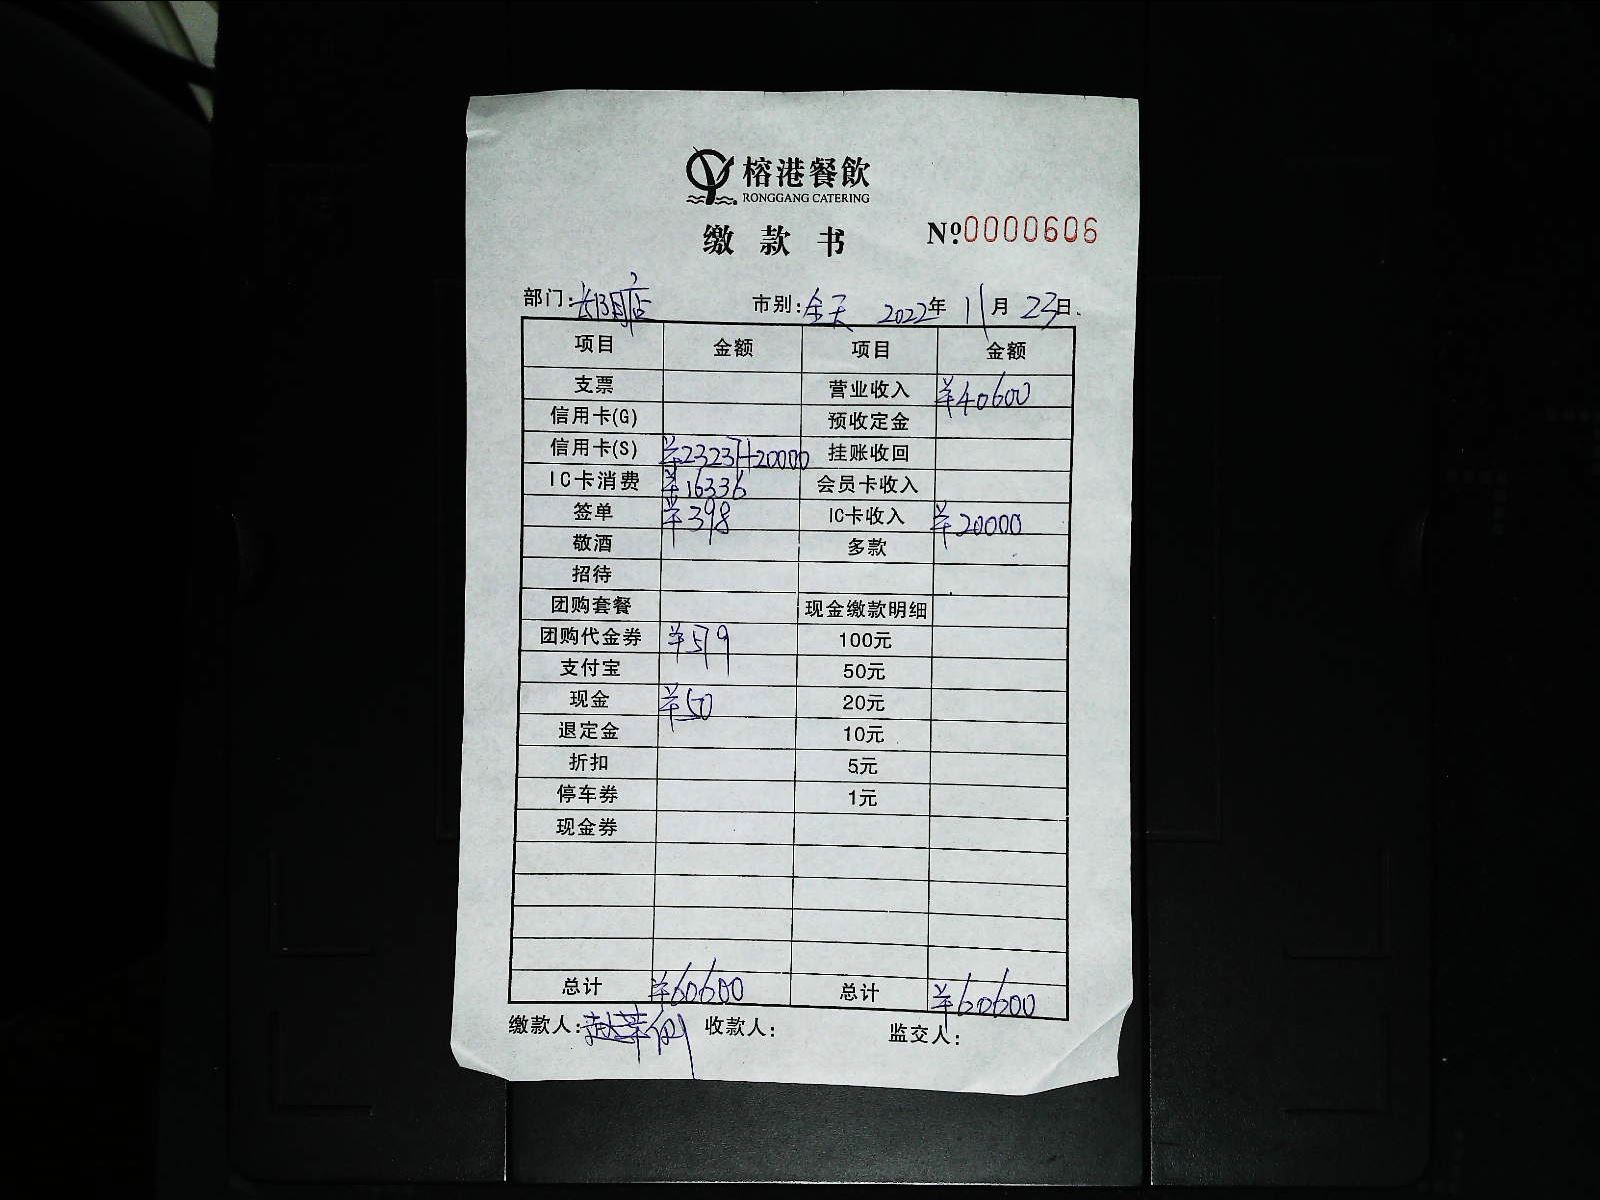 榕港餐飲
RONGGANG CATERING
缴款书 Nº:0000606
部门:长阳店 市别:全天 2022年11月23日.
项目 金额 项目 金额
支票 营业收入 ¥40600
信用卡(G) 预收定金
信用卡(S) ¥23237+20000 挂账收回
IC卡消费 ¥16336 会员卡收入
签单 ¥398 IC卡收入 ¥20000
敬酒 多款
招待
团购套餐 现金缴款明细
团购代金券 ¥579 100元
支付宝 50元
现金 ¥50 20元
退定金 10元
折扣 5元
停车券 1元
现金券
总计 ¥60600 总计 ¥60600
缴款人: 收款人: 监交人: